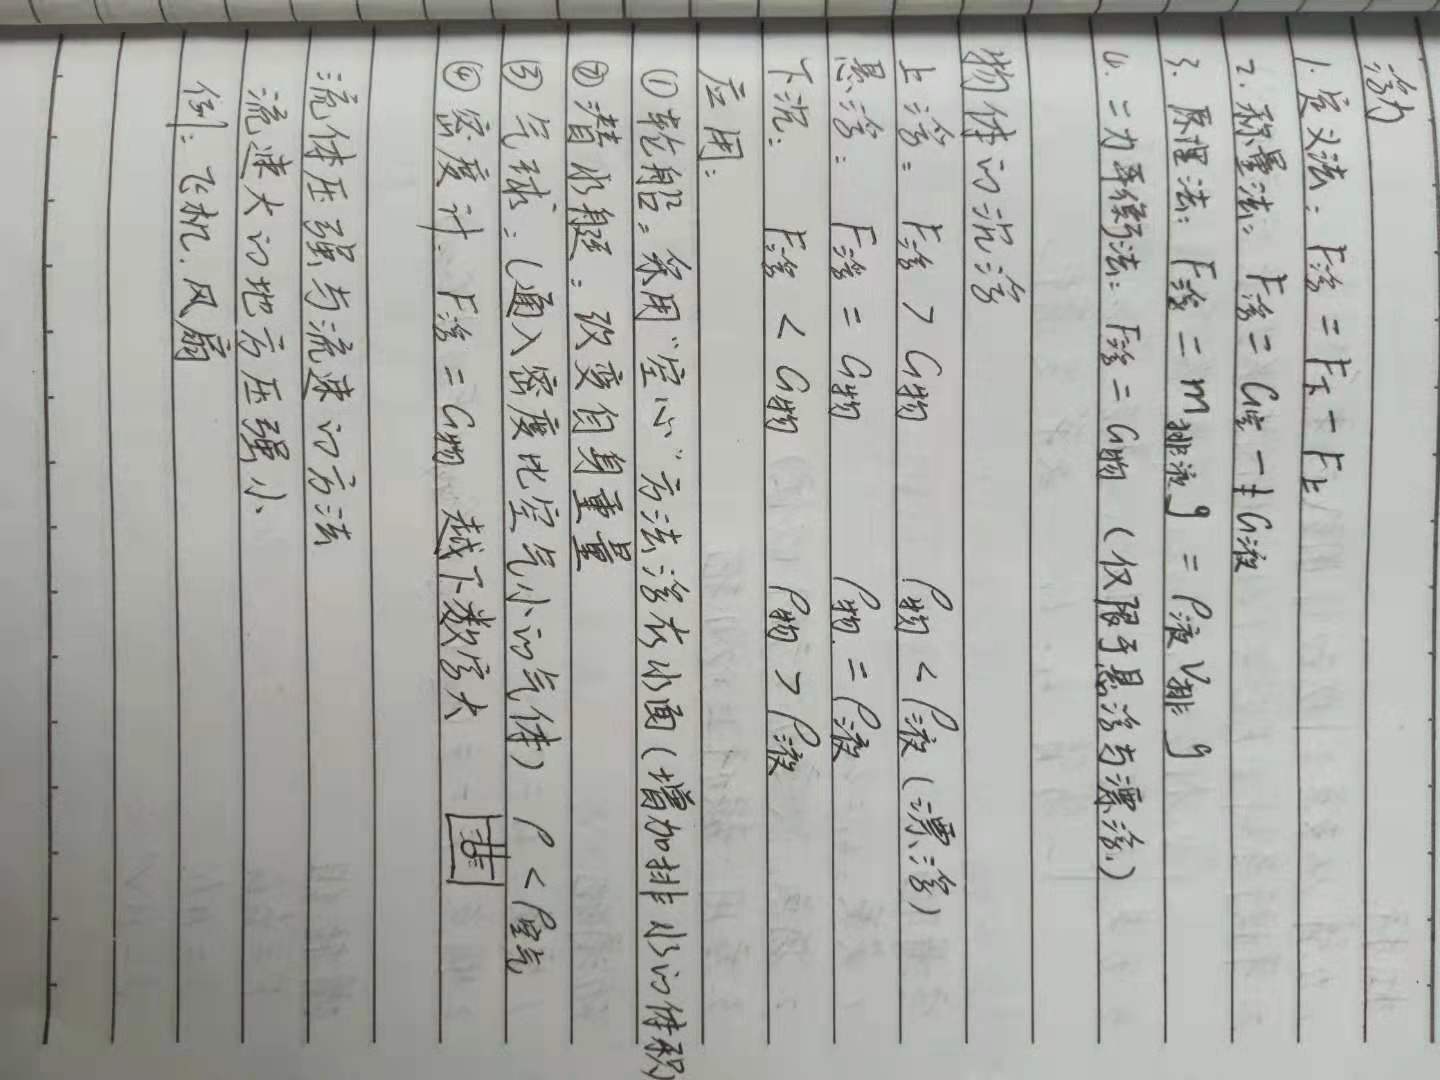 浮力
1. 定义法: F浮 = F下 - F上
2. 称量法: F浮 = G空 - G液
3. 原理法: F浮 = m排液g = ρ液V排g
4. 二力平衡法: F浮 = G物 (仅限于悬浮与漂浮)
物体的沉浮
上浮: F浮 > G物 ρ物 < ρ液 (漂浮)
悬浮: F浮 = G物 ρ物 = ρ液
下沉: F浮 < G物 ρ物 > ρ液
应用:
① 轮船: 采用"空心"方法浮在水面(增加排水的体积)
② 潜水艇: 改变自身重量
③ 气球: (通入密度比空气小的气体) ρ < ρ空气
④ 密度计: F浮 = G物 越下数字大
流体压强与流速的方法
流速大的地方压强小
例: 飞机. 风扇